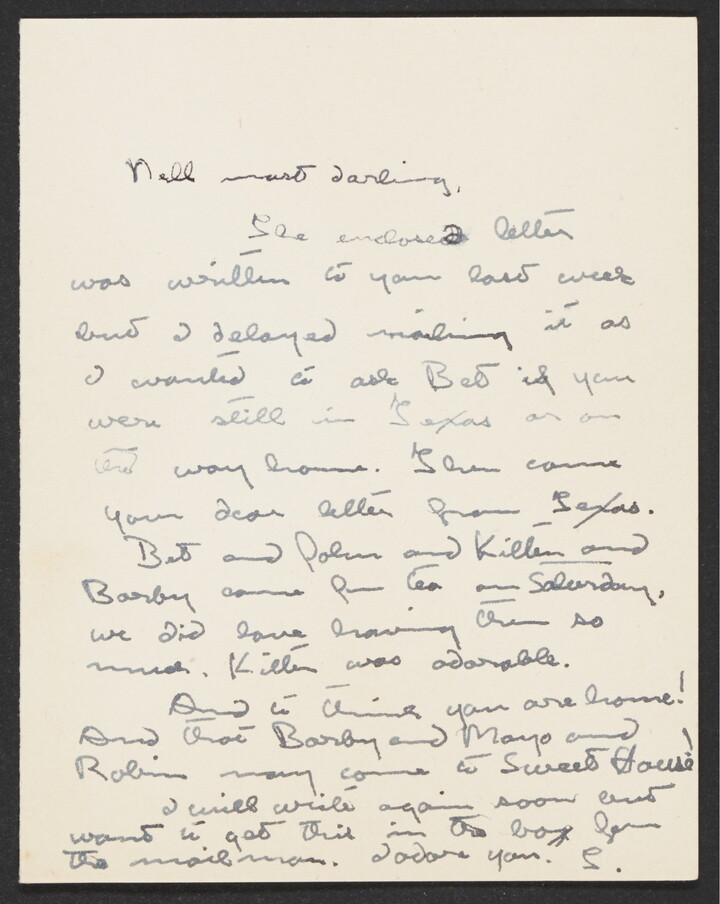 Nell most darling,
The enclosed letter
was written to you last week
but I delayed mailing it as
I wanted to ask Bet if you
were still in Texas or on
the way home. Then came
your dear letter from Texas.
Bet and John and Kitten and
Barby came for tea on Saturday,
we did love having them so
much. Kitten was adorable.
And to think you are home!
And that Barby and Mayo and
Robin may come to Sweet House!
I will write again soon but
want to get this in the box for
the mail man. I adore you. S.